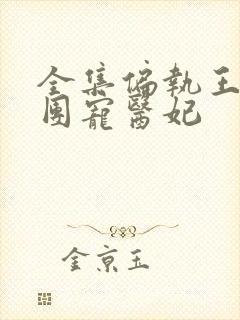 全集偏執王
團寵醫妃
金京玉